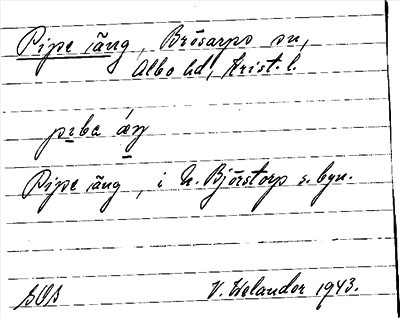 Pipe äng, Brösarps sn,
Albo hd, Krist. l.
pıba áŋ
Pipe äng, i N. Björstorp s. byn.
SOS V. Welander 1943.